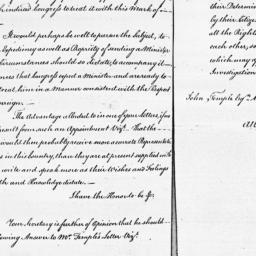 induced Congress to treat it with this Mark of
It would perhaps be well to prepare the Subject, to
expediency as well as Propriety of sending a Minister
Circumstances should so dictate, to accompany it
that Congress expect a Minister and are ready to
treat him in a Manner consistent with the Respect
Sovereign.
The Advantage alluded to in one of your Letters, if
result from such an Appointment Vizt. That the
would then probably receive more accurate Representations
in this country, than they are at present supplied with
write and speak more as their Wishes and Feelings
and Knowledge dictate.
I have the Honor to be &c.
Your Secretary is further of Opinion that he should
following Answer to Mr. Temple's Letter Vizt.
their Determin
by their Citizens
all the Right
each other, so
which may
Investigation
John Temple Esqr.